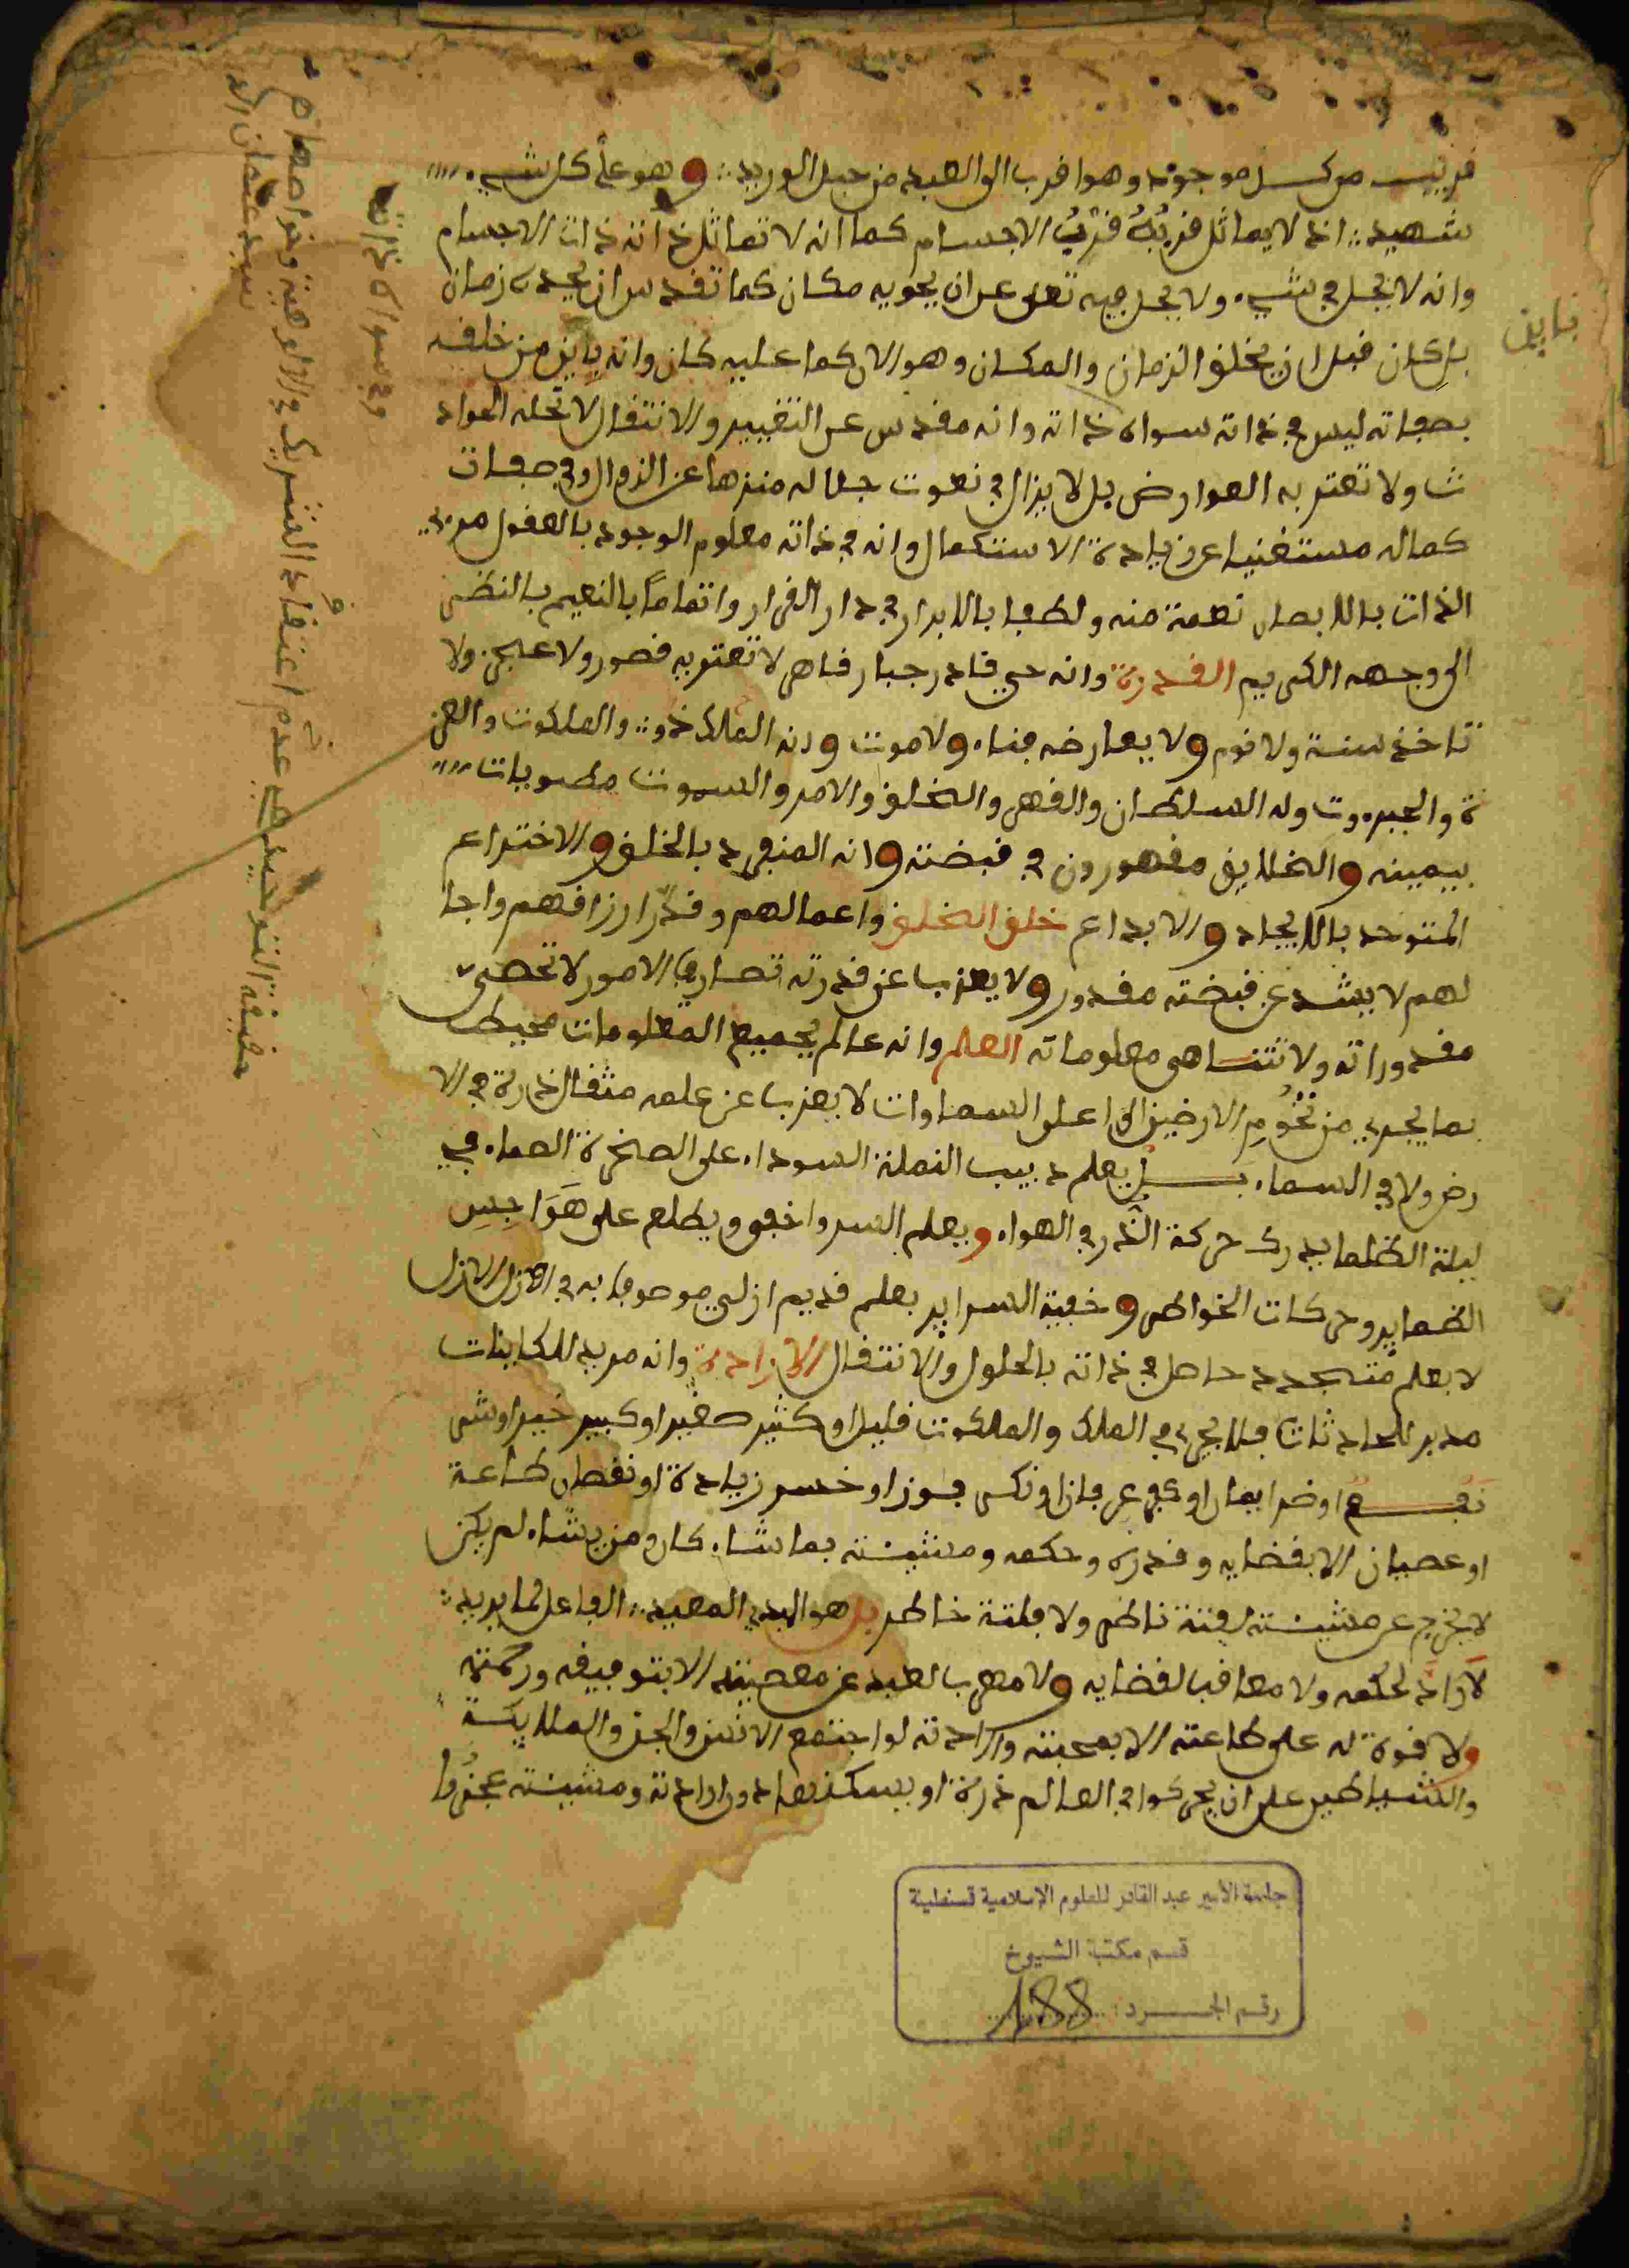 قريب من كل موجود وهو اقرب الى العبد من حبل الوريد وهو على كل شيء
شهيد اذ لا يماثل قربُهُ قربُ الاجسام كما انه لا تماثل ذاته ذات الاجسام
وانه لا يحل في شيء ولا يحل فيه تعلى عن ان يحويه مكان كما تقدس ان يحده زمان
بل كان قبل ان يخلق الزمان والمكان وهو الان كما عليه كان وانه باين من خلقه
بصفاته ليس في ذاته سواه ذاته وانه مقدس عن التغيير والانتقال لا تحله الحواد
ث ولا تعتريه العوارض بل لا يزال في نعوت جلاله منزها عن الزوال وفي صفات
كماله مستغنيا عن زيادة الاستكمال وانه في ذاته معلوم الوجود بالعقول مرءي
الذات بالابصار نعمة منه ولطفا بالابرار في دار القرار واتماماً بالنعيم بالنظر
الى وجهه الكريم القدرة وانه حي قادر جبار قاهر لا تعتريه قصور ولا عجز ولا
تاخذ سنة ولا نوم ولا يعارضه فناء ولا موت وانه الملك ذو والملكوت والعز
ة والجبروت وله السلطان والقهر والخلق والامر والسموت مطويات
بيمينه والخلايق مقهورون في قبضته وانه المنفرد بالخلق والاختراع
المتوحد بالايجاد والابداع خلق الخلق واعمالهم وقدّر ارزاقهم واجا
لهم لا يشد عن قبضته مقدور ولا يعزب عن قدرته تصاريف الامور لا تحصى
مقدوراته ولا تتناهى معلوماته العلم وانه عالم بجميع المعلومات محيط
بما يجري من تُخُومِ الارضين الى اعلى السماوات لا يعزب عن علمه مثقال ذرة في الا
رض ولا في السماء بل يعلم دبيب النملة السوداء على الصخرة الصماء في
ليلة الظلما يدرك حركة الذر في الهواء ويعلم السر واخفى ويطلع على هَوَاجِسِ
الضماير وحركات الخواطر وخفية السراير بعلم قديم ازلي موصوفا به في ازل الازل
لا بعلم متجدد حاصل في ذاته بالحلول والانتقال الارادة وانه مريد للكاينات
مدبر للحادثات فلا يجري في الملك والملكوت قليل او كثير صغير او كبير خير او شر
نفع او ضر ايمان او كفر عرفان او نكر فوز او خسر زيادة او نقصان طاعة
او عصيان الا بقضايه وقدره وحكمه ومشيئته بما شاء كان ومن يشاء لم يكن
لا يخرج عن مشيئته لفتة ناظر ولا فلتة خاطر بل هو المبدي المعيد الفاعل لما يريد
لا رادّ لحكمه ولا معاقب لقضايه ولا مهرب لعبد عن معصيته الا بتوفيقه ورحمته
ولا قوة له على طاعته الا بمحبته وارادته لو اجتمع الانس والجن والملايكة
والشياطين على ان يحركوا في العالم ذرة او يسكنوها دون ارادته ومشيئته عجزوا
باين
وفي سواه ذاته
حقيقة التوحيد هي عدم اعتقاد الشريك في الالوهية وخواصها ه
سيد عثمان
جامعة الأمير عبد القادر للعلوم الإسلامية قسنطينة
قسم مكتبة الشيوخ
رقم الجرد: 188